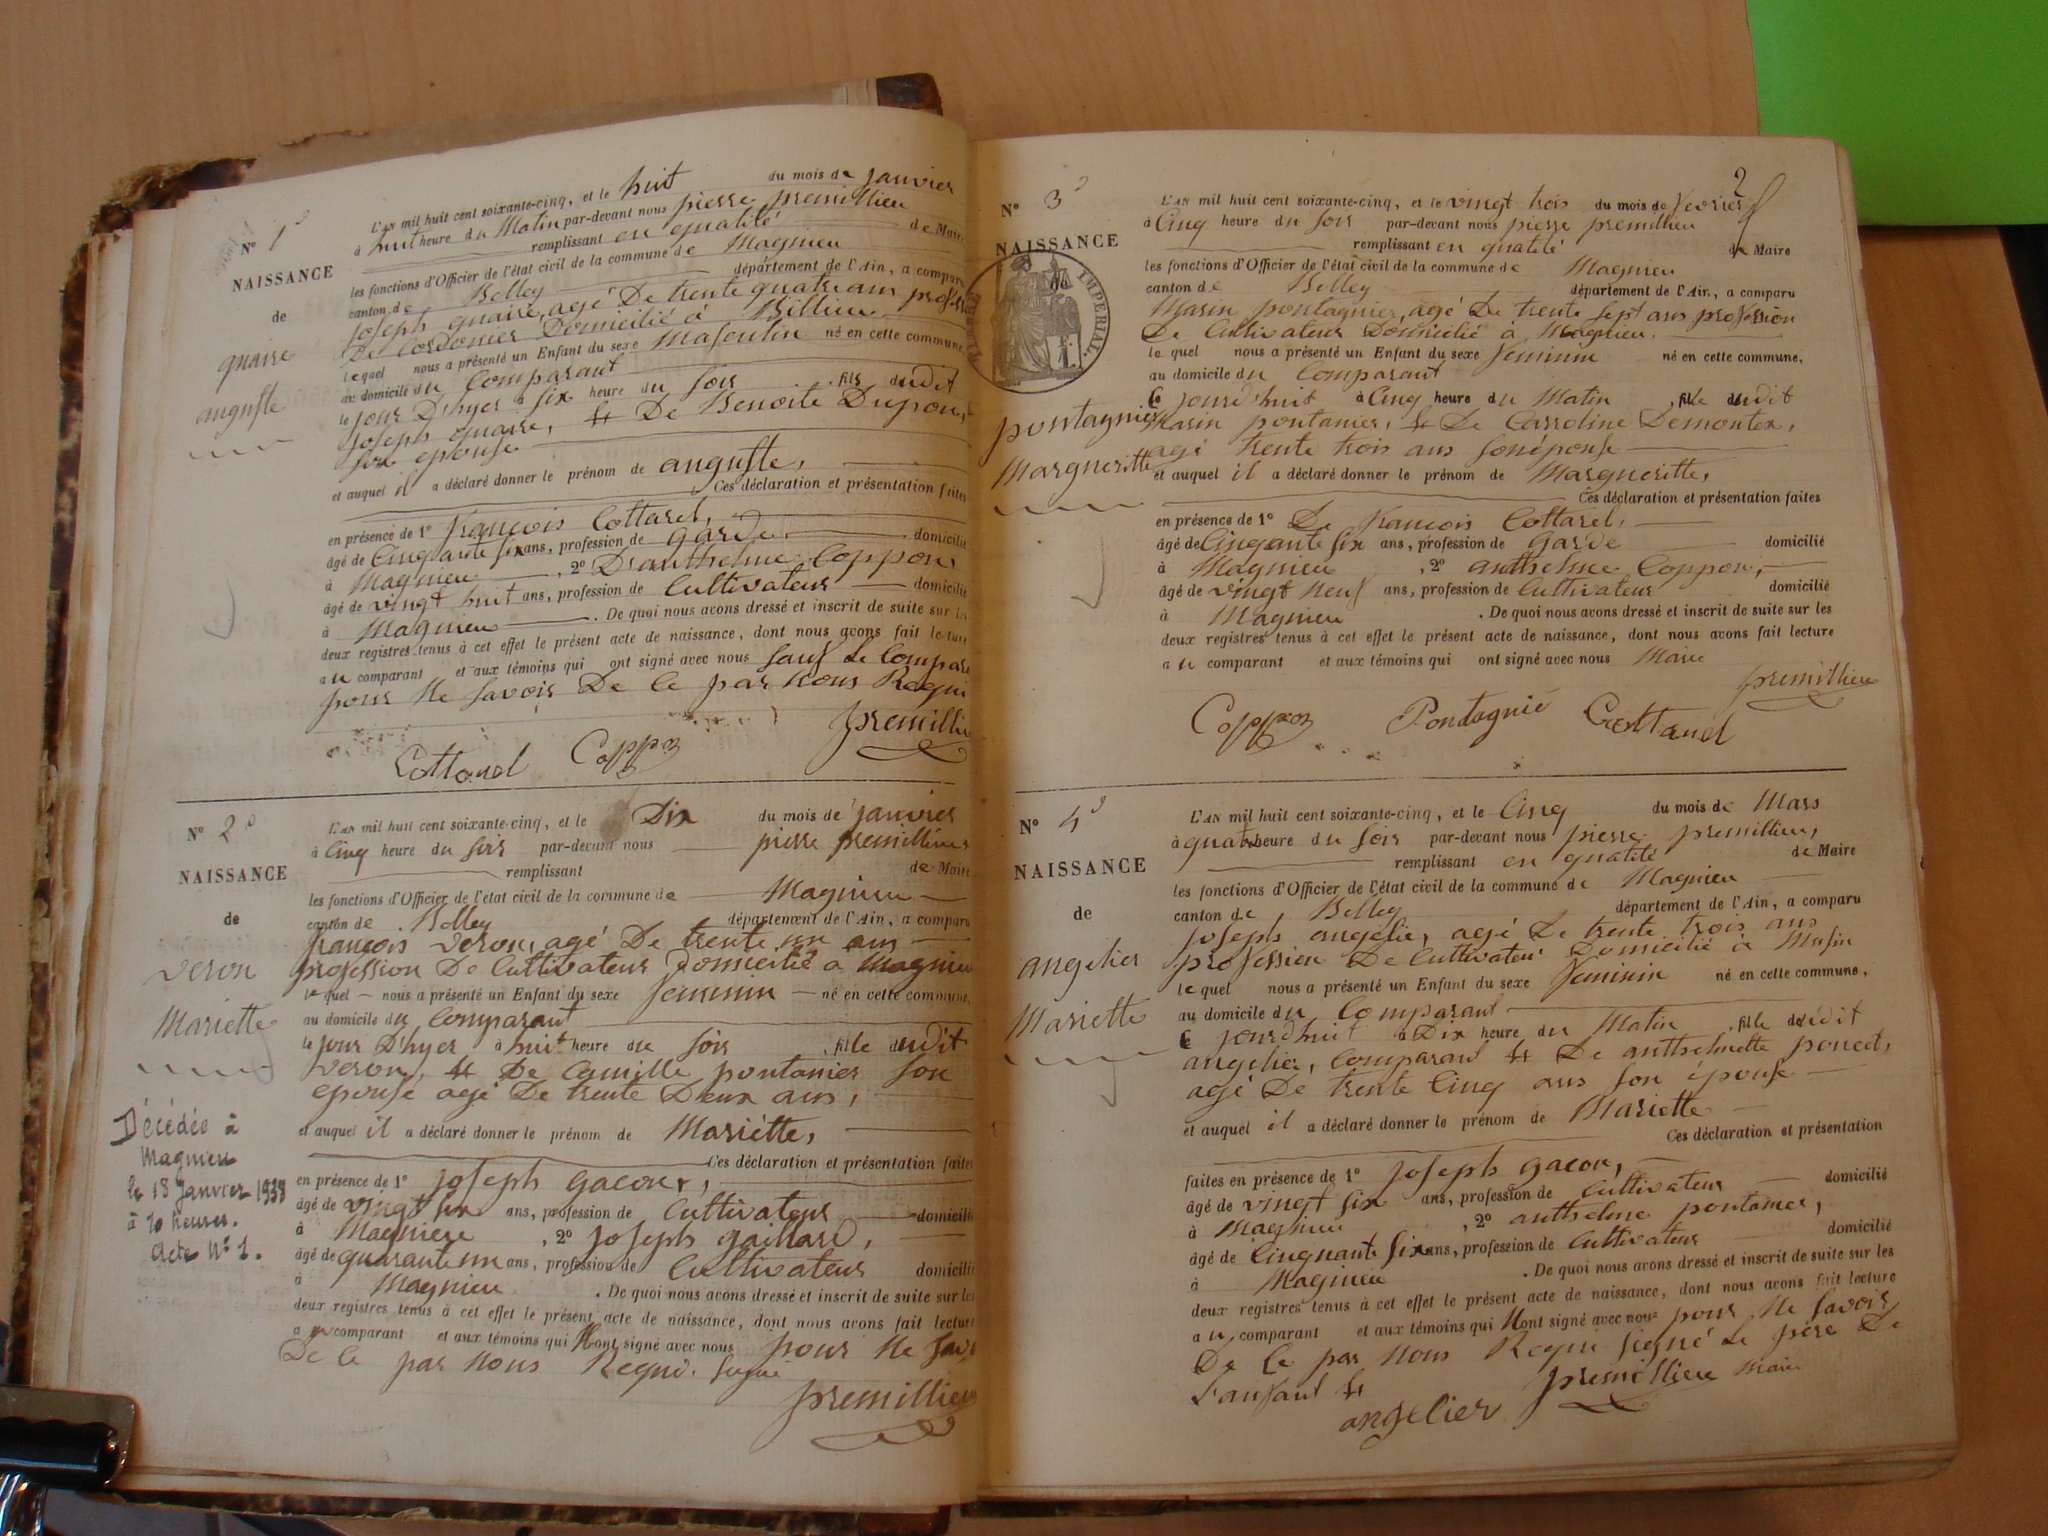 N° 1
NAISSANCE
de
quaire
auguste
L'AN mil huit cent soixante-cinq, et le huit du mois de janvier
à huit heure du Matin par-devant nous pierre premillieu
remplissant en qualité de Maire
les fonctions d'Officier de l'état civil de la commune de Magnieu
canton de Belley département de l'Ain, a comparu
joseph quaire, agé De trente quatre ans profession
De Cordonier Domicilié à Billieu
lequel nous a présenté un Enfant du sexe Masculin né en cette commune,
au domicile du Comparant
le jour D'hyer à six heure du soir fils dudit
joseph quaire, et De Benoite Dupon,
son epouse
et auquel il a déclaré donner le prénom de auguste,
Ces déclaration et présentation faites
en présence de 1° françois Cottarel,
âgé de Cinquante six ans, profession de Garde domicilié
à Magnieu, 2° D'anthelme Coppon
âgé de vingt huit ans, profession de Cultivateur domicilié
à Magnieu. De quoi nous avons dressé et inscrit de suite sur les
deux registres tenus à cet effet le présent acte de naissance, dont nous avons fait lecture
au comparant et aux témoins qui ont signé avec nous sauf Le Compara
pour Ne savoir De Ce par Nous Requi
premillieu
Cottarel Coppon
N° 2
NAISSANCE
de
veron
Mariette
Décédée à
Magnieu
le 18 Janvier 1938
à 20 heures.
Acte N° 1.
L'AN mil huit cent soixante-cinq, et le Dix du mois de janvier
à Cinq heure du soir par-devant nous pierre premillieu
remplissant de Maire
les fonctions d'Officier de l'état civil de la commune de Magnieu
canton de Belley département de l'Ain, a comparu
françois veron, agé De trente un ans
profession De Cultivateur Domicilié à Magnieu
lequel nous a présenté un Enfant du sexe feminin né en cette commune,
au domicile du Comparant
le jour D'hyer à huit heure du soir fille dudit
veron, et De Camille pontanier son
epouse agé De trente Deux ans,
et auquel il a déclaré donner le prénom de Mariette,
Ces déclaration et présentation faites
en présence de 1° joseph gacon,
âgé de vingt six ans, profession de Cultivateur domicilié
à Magnieu, 2° joseph gaillard,
âgé de quarante un ans, profession de Cultivateur domicilié
à Magnieu. De quoi nous avons dressé et inscrit de suite sur les
deux registres tenus à cet effet le présent acte de naissance, dont nous avons fait lecture
au comparant et aux témoins qui N'ont signé avec nous pour Ne savoir
De Ce par Nous Requi signé
premillieu
2
N° 3
NAISSANCE
IMPERIAL.
pontagnier
Margueritte
L'AN mil huit cent soixante-cinq, et le vingt trois du mois de fevrier
à Cinq heure du soir par-devant nous pierre premillieu
remplissant en qualité de Maire
les fonctions d'Officier de l'état civil de la commune de Magnieu
canton de Belley département de l'Ain, a comparu
Marin pontagnier, agé De trente sept ans profession
De Cultivateur Domicilié à Magnieu.
lequel nous a présenté un Enfant du sexe feminin né en cette commune,
au domicile du Comparant
Ce jourd'huit à Cinq heure du Matin fille dudit
Marin pontanier, et De Carroline Demontex,
agé trente trois ans son épouse
et auquel il a déclaré donner le prénom de Margueritte,
Ces déclaration et présentation faites
en présence de 1° De françois Cottarel,
âgé de Cinqante six ans, profession de Garde domicilié
à Magnieu, 2° anthelme Coppon,
âgé de vingt Neuf ans, profession de Cultivateur domicilié
à Magnieu. De quoi nous avons dressé et inscrit de suite sur les
deux registres tenus à cet effet le présent acte de naissance, dont nous avons fait lecture
au comparant et aux témoins qui ont signé avec nous Maire
premillieu
Coppon Pontagnié Cottarel
N° 4
NAISSANCE
de
angelier
Mariette
L'AN mil huit cent soixante-cinq, et le Cinq du mois de Mars
à quatre heure du soir par-devant nous pierre premillieu,
remplissant en qualité de Maire
les fonctions d'Officier de l'état civil de la commune de Magnieu
canton de Belley département de l'Ain, a comparu
joseph angelier, agé De trente trois ans
profession De Cultivateur Domicilié à Musin
lequel nous a présenté un Enfant du sexe feminin né en cette commune,
au domicile du Comparant
Ce jourdhuit à Dix heure du Matin fille dudit
angelier, Comparant et De anthelmette poncet,
agé De trente Cinq ans son épouse
et auquel il a déclaré donner le prénom de Mariette
Ces déclaration et présentation
faites en présence de 1° joseph gacon,
âgé de vingt six ans, profession de Cultivateur domicilié
à Magnieu, 2° anthelme pontanier,
âgé de Cinquante six ans, profession de Cultivateur domicilié
à Magnieu. De quoi nous avons dressé et inscrit de suite sur les
deux registres tenus à cet effet le présent acte de naissance, dont nous avons fait lecture
au comparant et aux témoins qui N'ont signé avec nous pour Ne savoir
De Ce par Nous Requi signé Le père De
L'anfant et premillieu maire
angelier